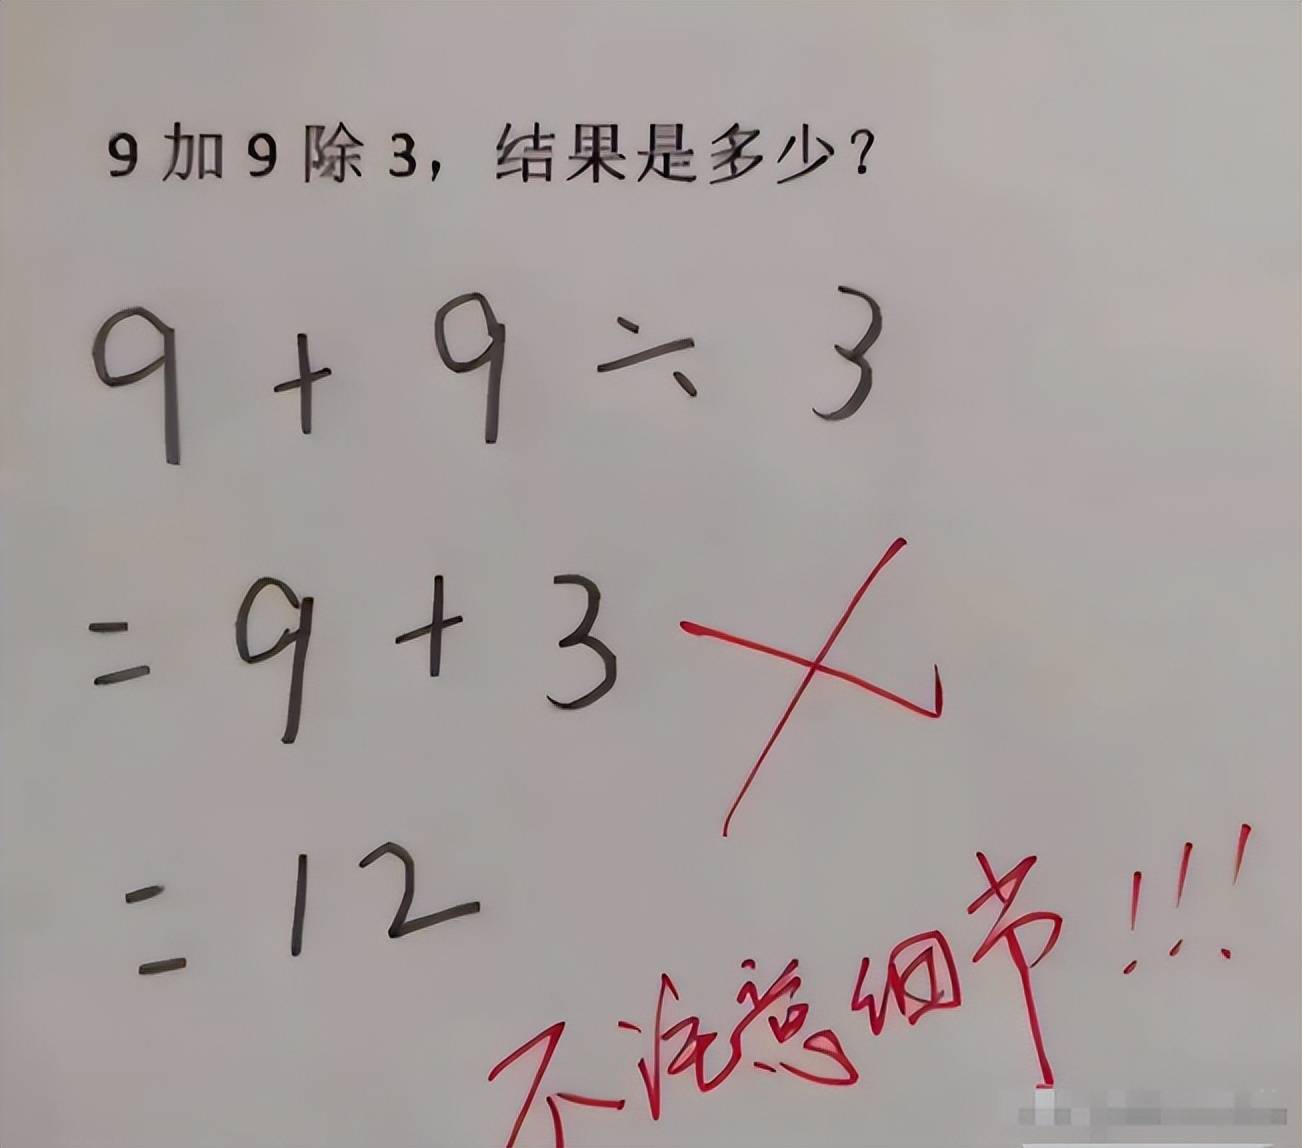 9加9除3，结果是多少？
9+9÷3
=9+3
=12
不注意细节!!!